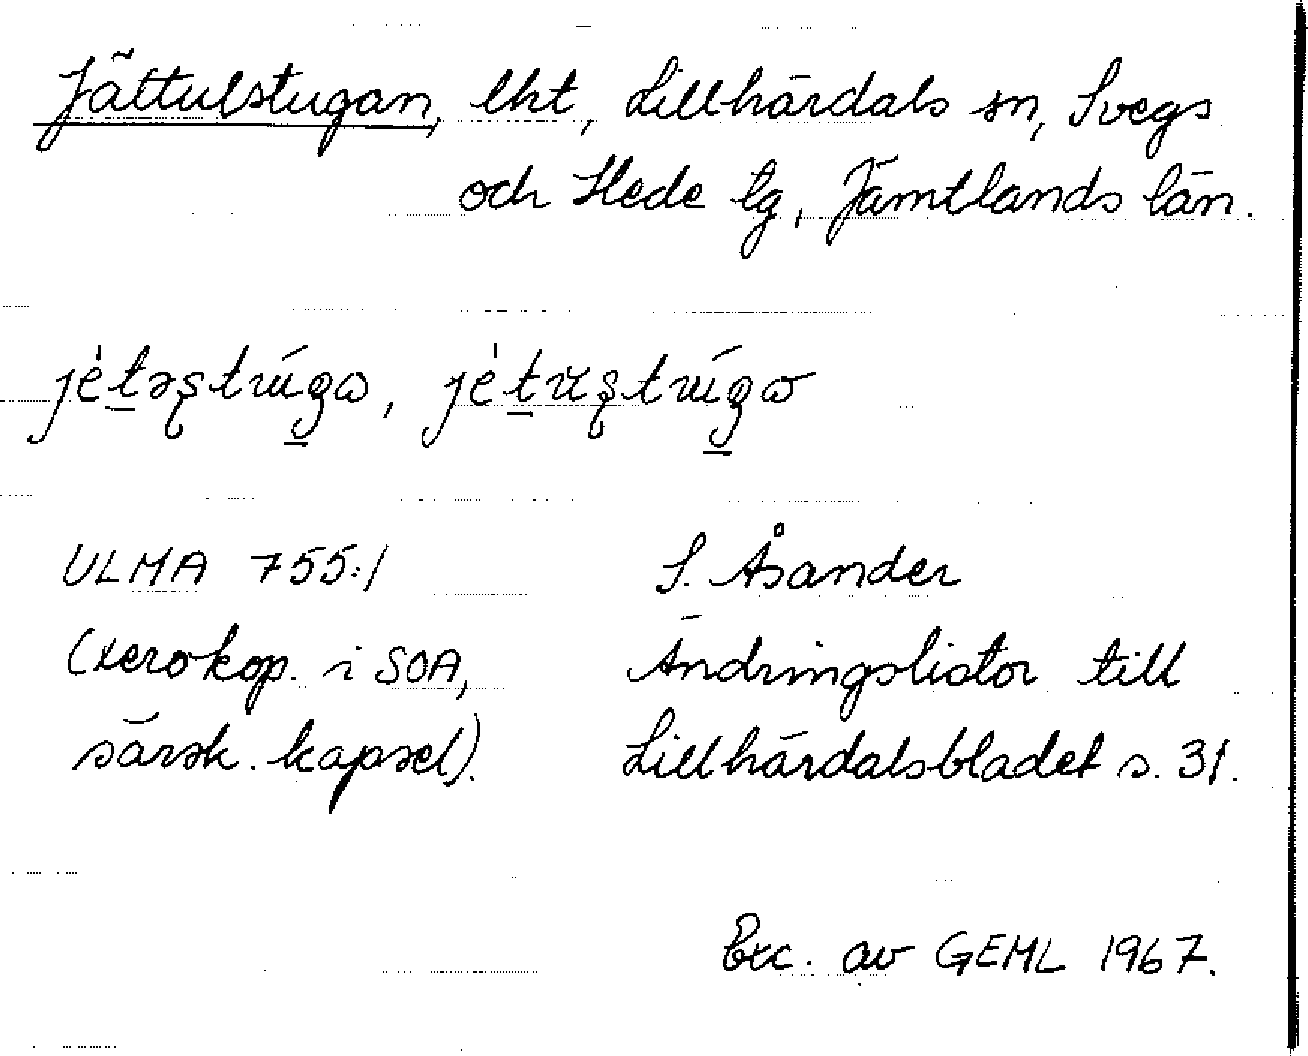 Jättulstugan, lht, Lillhärdals sn, Svegs
och Hede tg, Jämtlands län.
jètəʂtúga, jètuʂtúga
ULMA 755:1
(xerokop. i SOA,
särsk. kapsel).
S. Åsander
Ändringslistor till
Lillhärdalsbladet s. 31.
Exc. av GEML 1967.